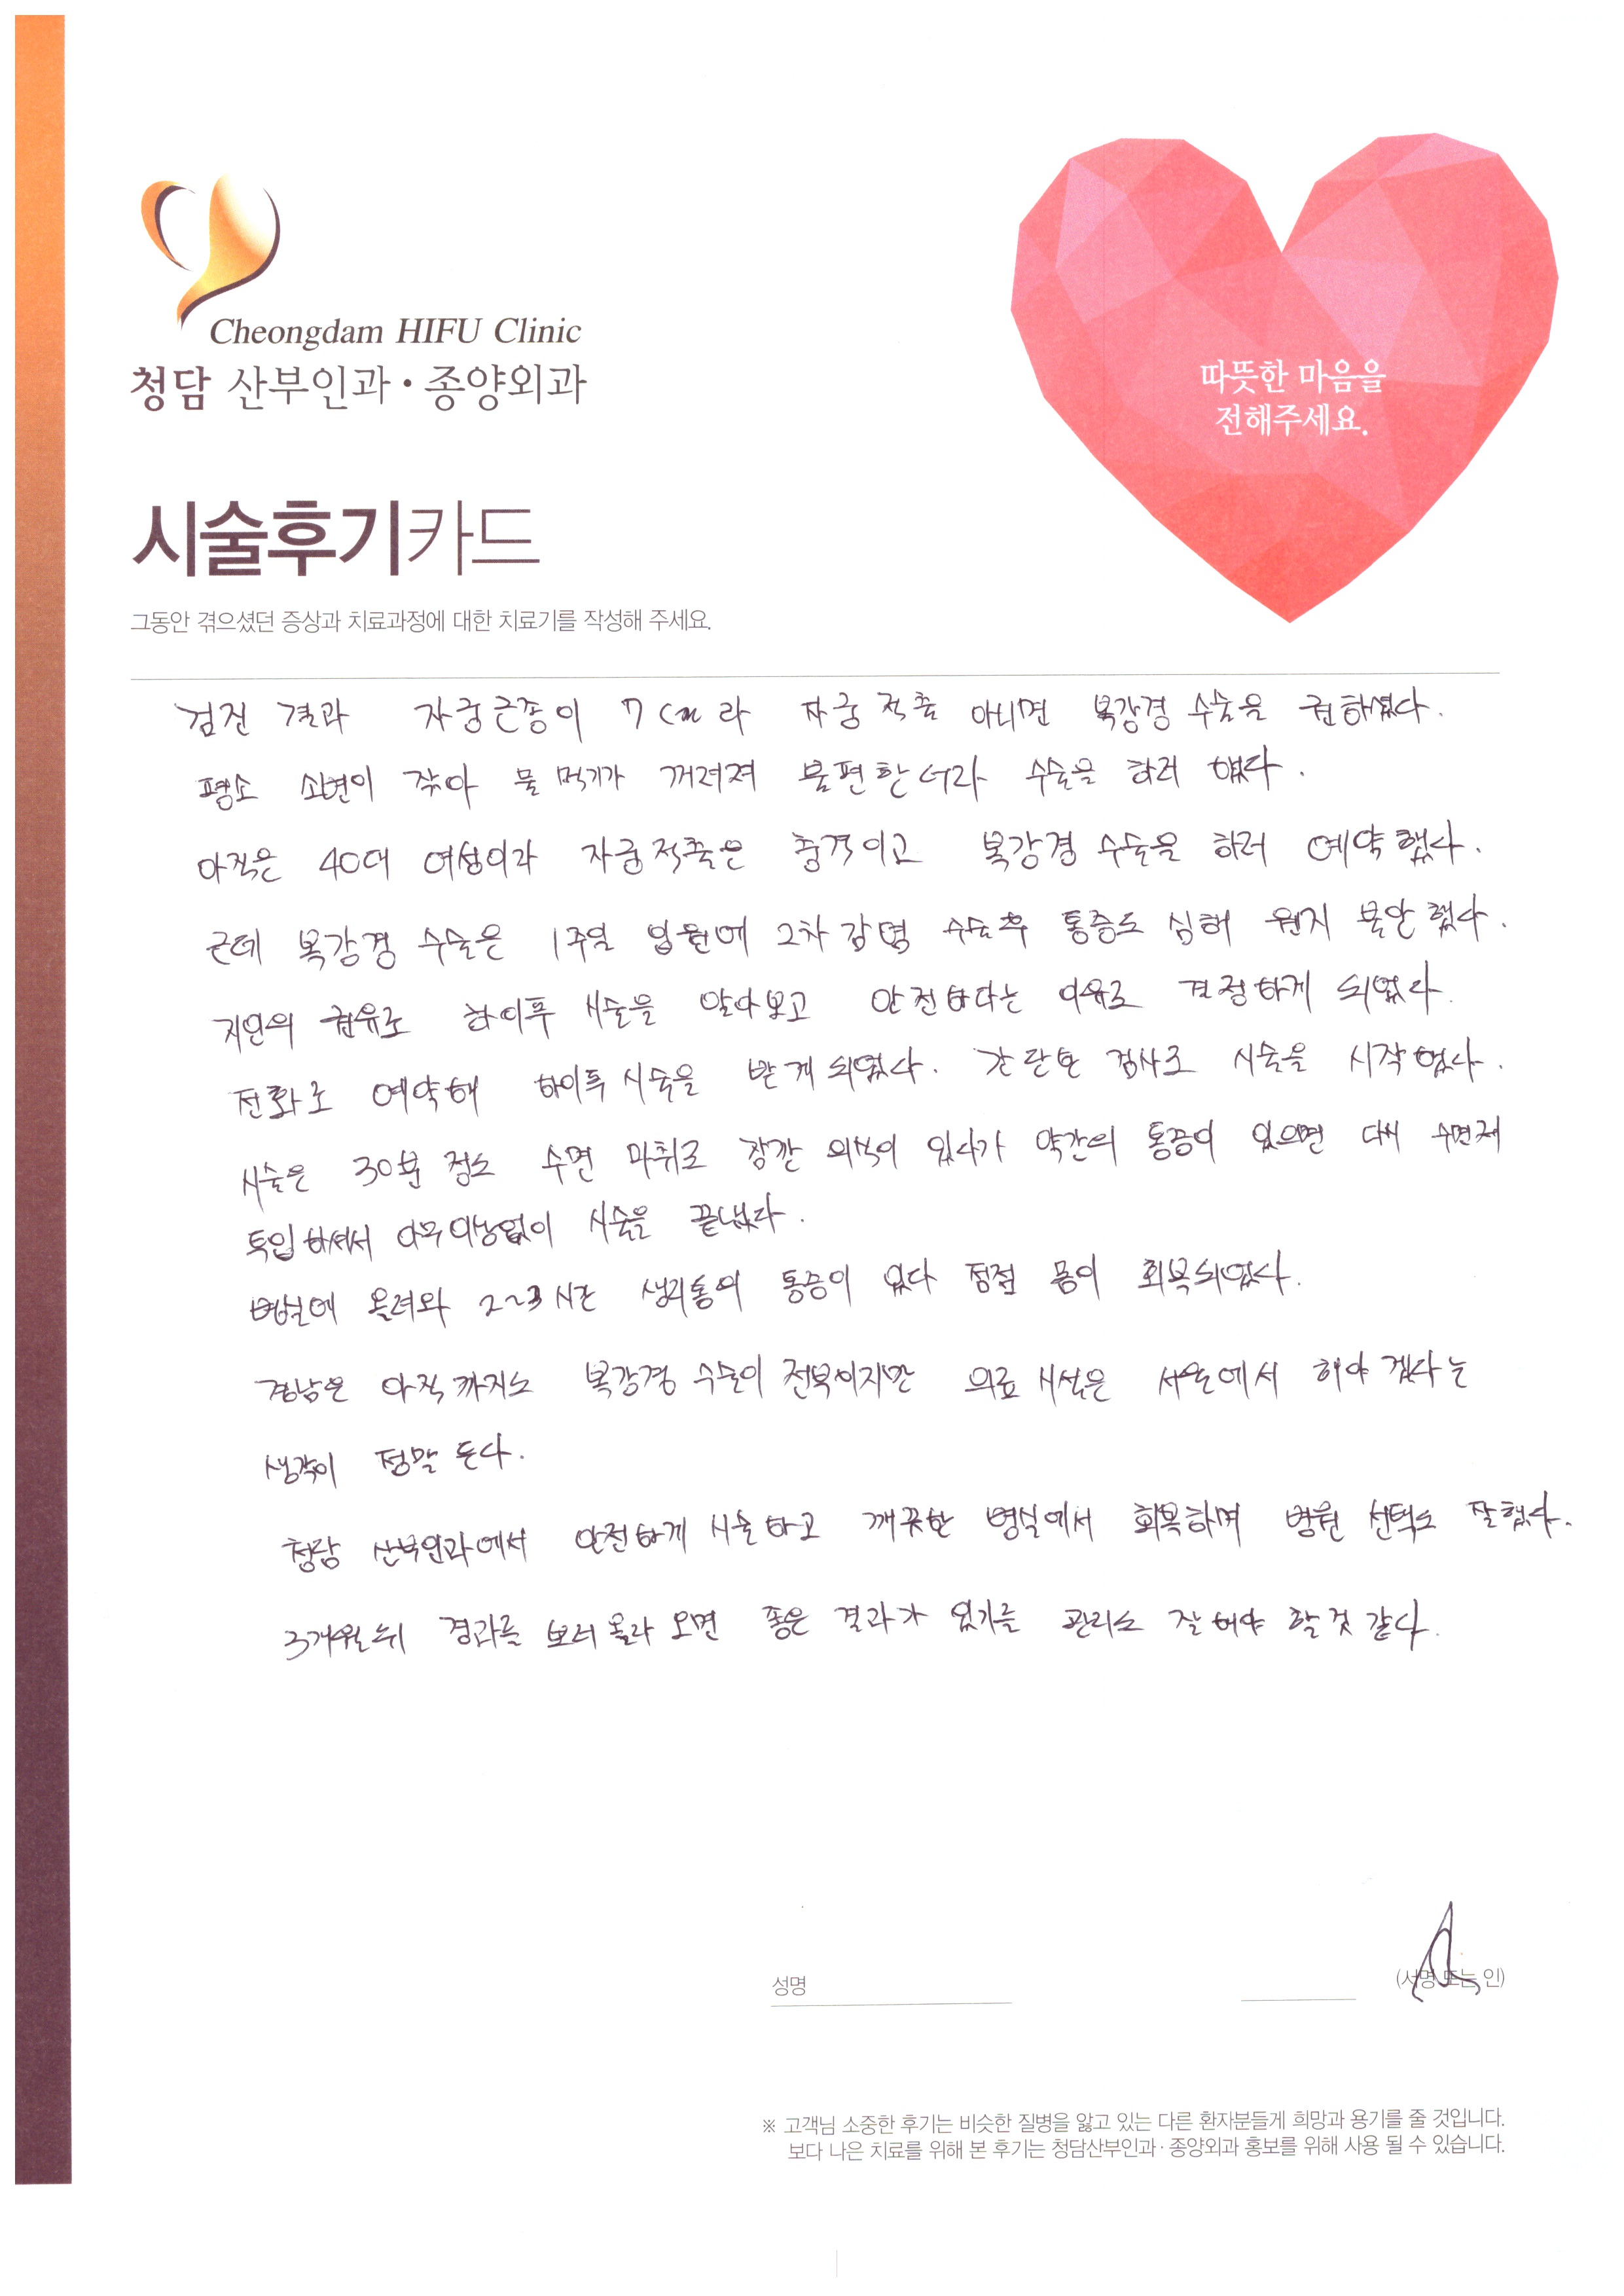 Cheongdam HIFU Clinic
청담 산부인과·종양외과
따뜻한 마음을
전해주세요.
시술후기카드
그동안 겪으셨던 증상과 치료과정에 대한 치료기를 작성해 주세요.
검진 결과 자궁근종이 7cm라 자궁적출 아니면 복강경 수술을 권하셨다.
평소 소변이 잦아 물 먹기가 꺼려져 불편한 수술을 하려 했다.
아직은 40대 여성이라 자궁적출은 충격이고 복강경 수술을 하려 예약했다.
근데 복강경 수술은 1주일 입원에 2차감염 수술후 통증도 심해 웬지 불안했다.
지인의 권유로 하이푸 시술을 알아보고 안전하다는 이유로 결정하게 되었다.
전화로 예약해 하이푸 시술을 받게 되었다. 간단한 검사로 시술을 시작했다.
시술은 30분 정도 수면 마취로 잠깐 의식이 있다가 약간의 통증이 있으면 대비 수면제
투입하셔서 아무이상없이 시술을 끝냈다.
병실에 올려와 2~3시간 생리통의 통증이 있다 점점 몸이 회복되었다.
경남은 아직까지도 복강경 수술이 전부이지만 의료 시설은 서울에서 해야겠다는
생각이 정말 든다.
청담 산부인과에서 안전하게 시술하고 깨끗한 병실에서 회복하며 병원 선택도 잘했다.
3개월뒤 경과를 보러 올라 오면 좋은 결과가 있기를 관리도 잘해야 할것 같다.
성명
(서명 또는 인)
※ 고객님 소중한 후기는 비슷한 질병을 앓고 있는 다른 환자분들게 희망과 용기를 줄 것입니다.
보다 나은 치료를 위해 본 후기는 청담산부인과·종양외과 홍보를 위해 사용 될 수 있습니다.